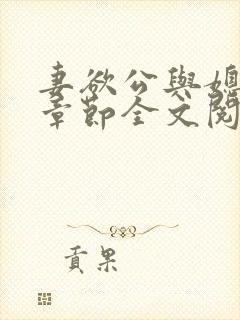 妻欲公與媳
章節全文閱
貢果